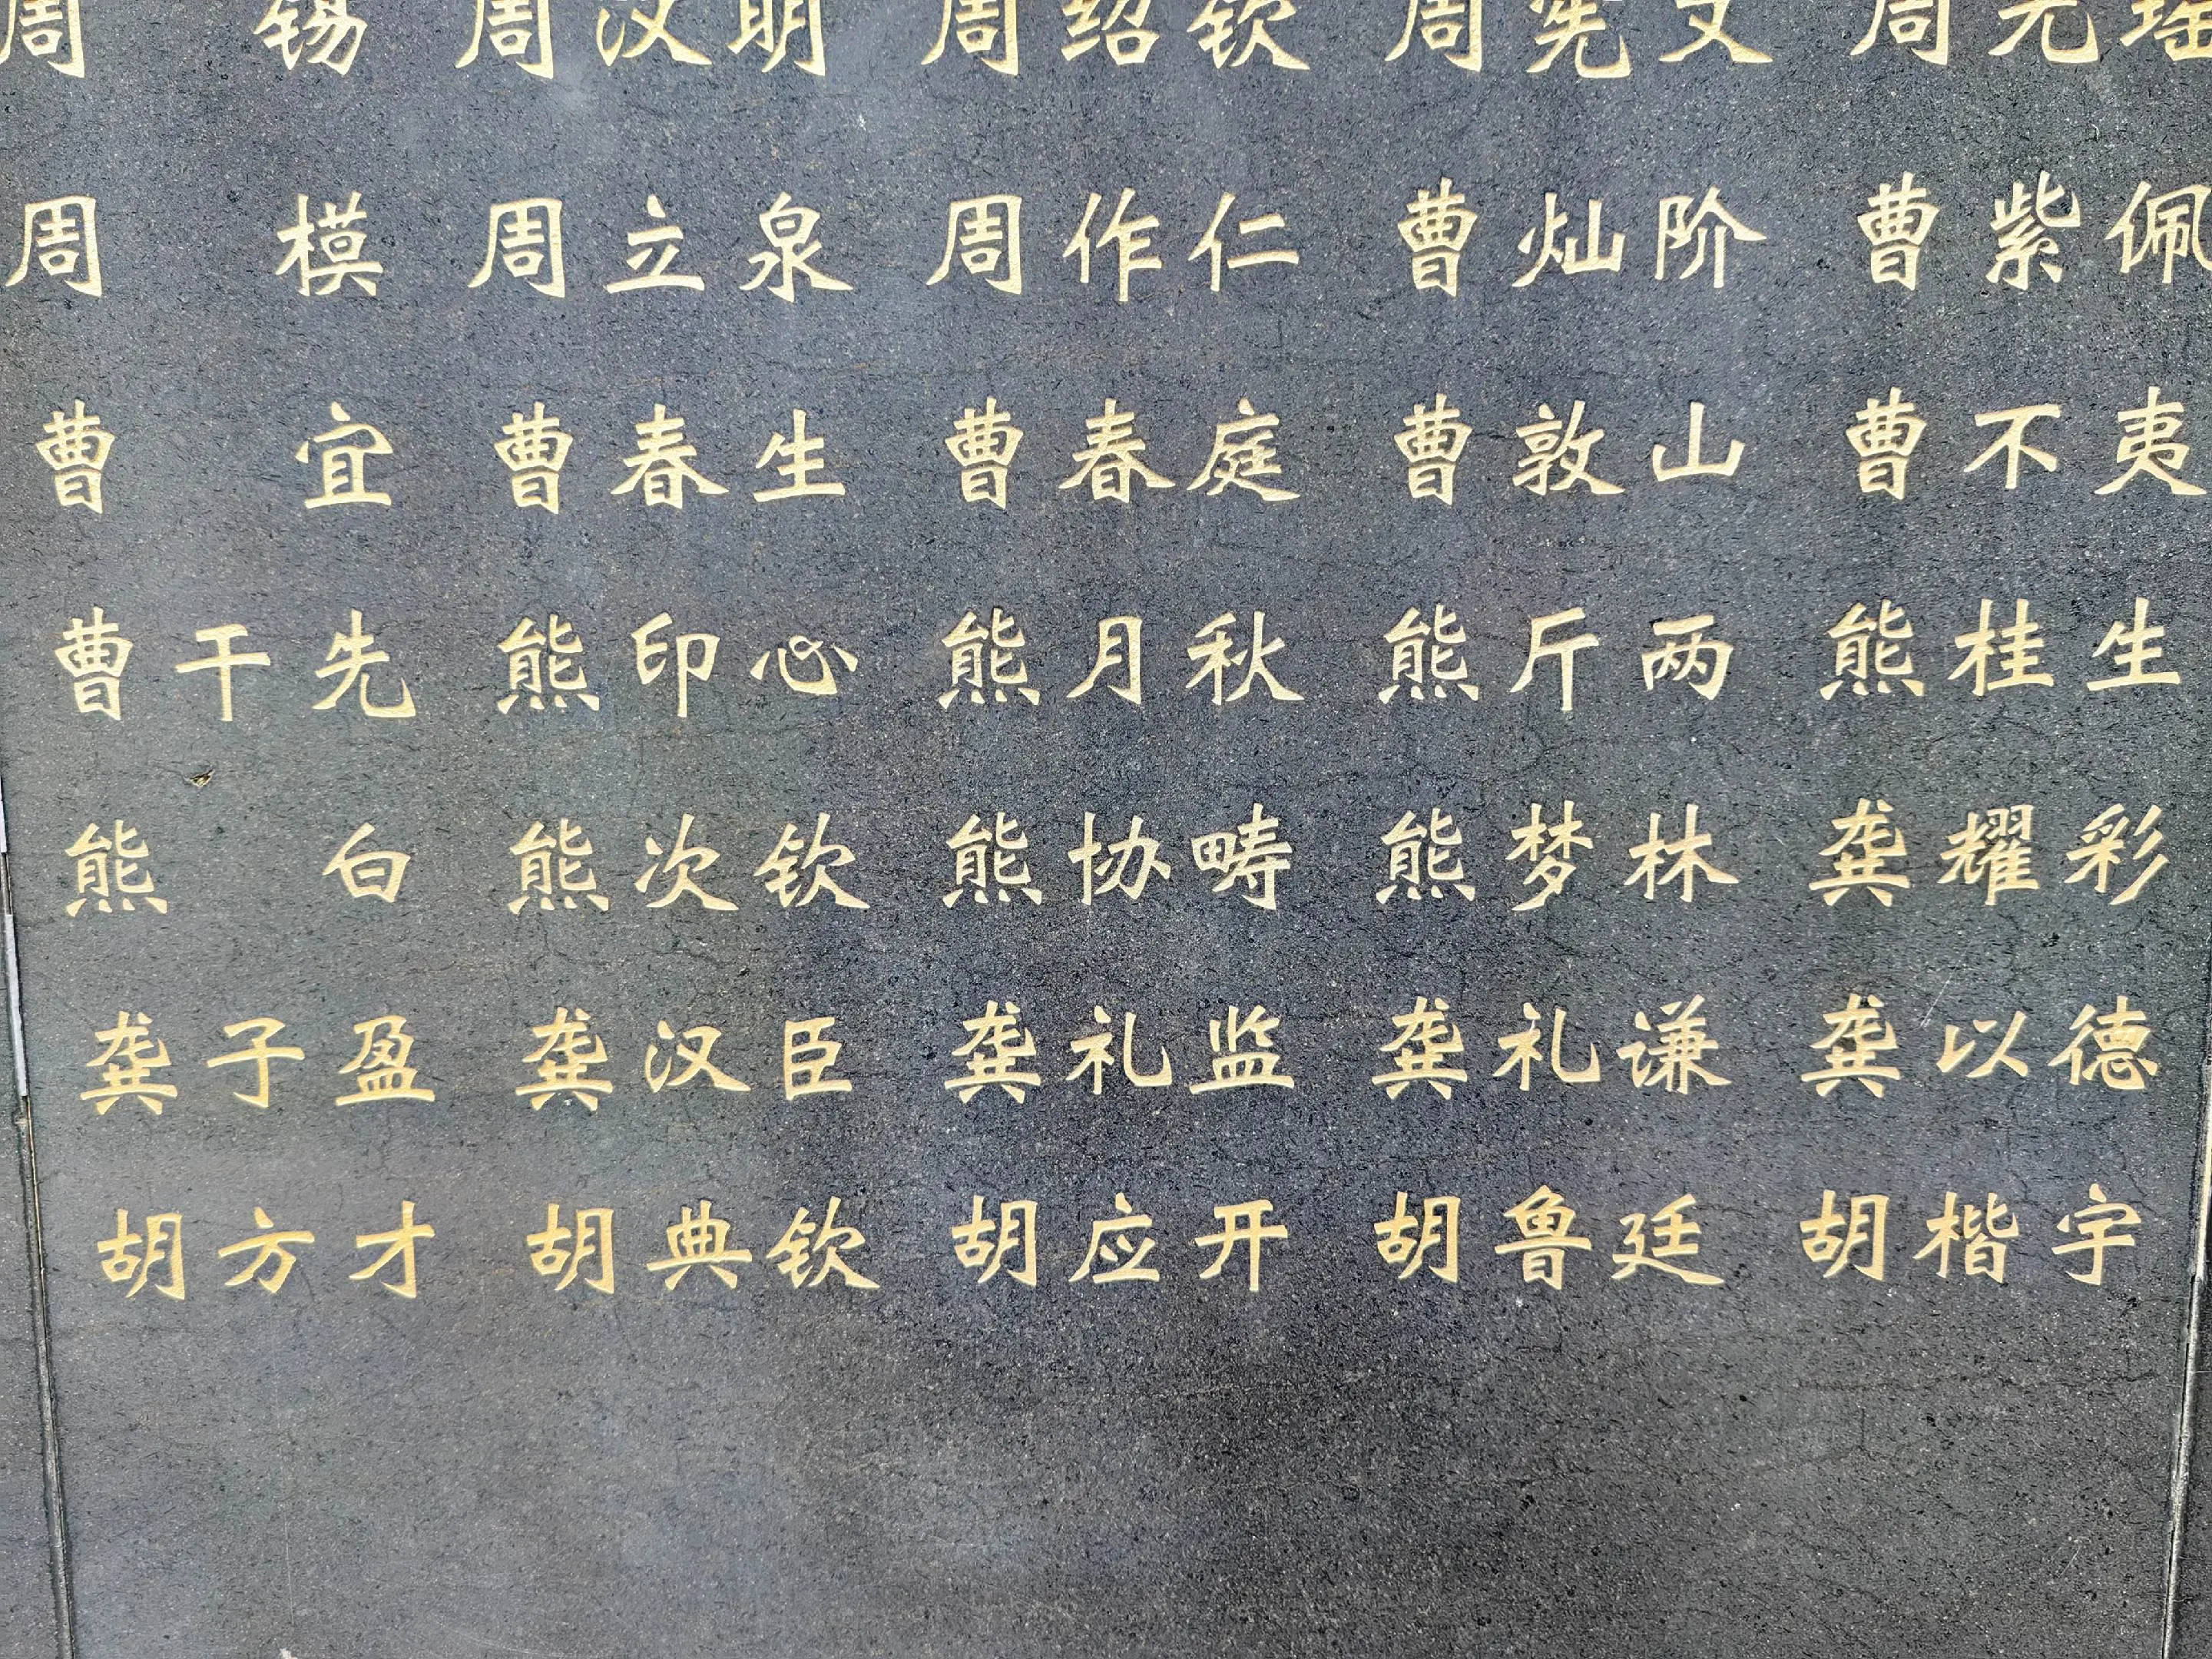 周　锡 周汉明 周绍钦 周宪文 周元瑶
周　模 周立泉 周作仁 曹灿阶 曹紫佩
曹　宜 曹春生 曹春庭 曹敦山 曹不夷
曹干先 熊印心 熊月秋 熊斤两 熊桂生
熊　白 熊次钦 熊协畴 熊梦林 龚耀彩
龚子盈 龚汉臣 龚礼监 龚礼谦 龚以德
胡方才 胡典钦 胡应开 胡鲁廷 胡楷宇